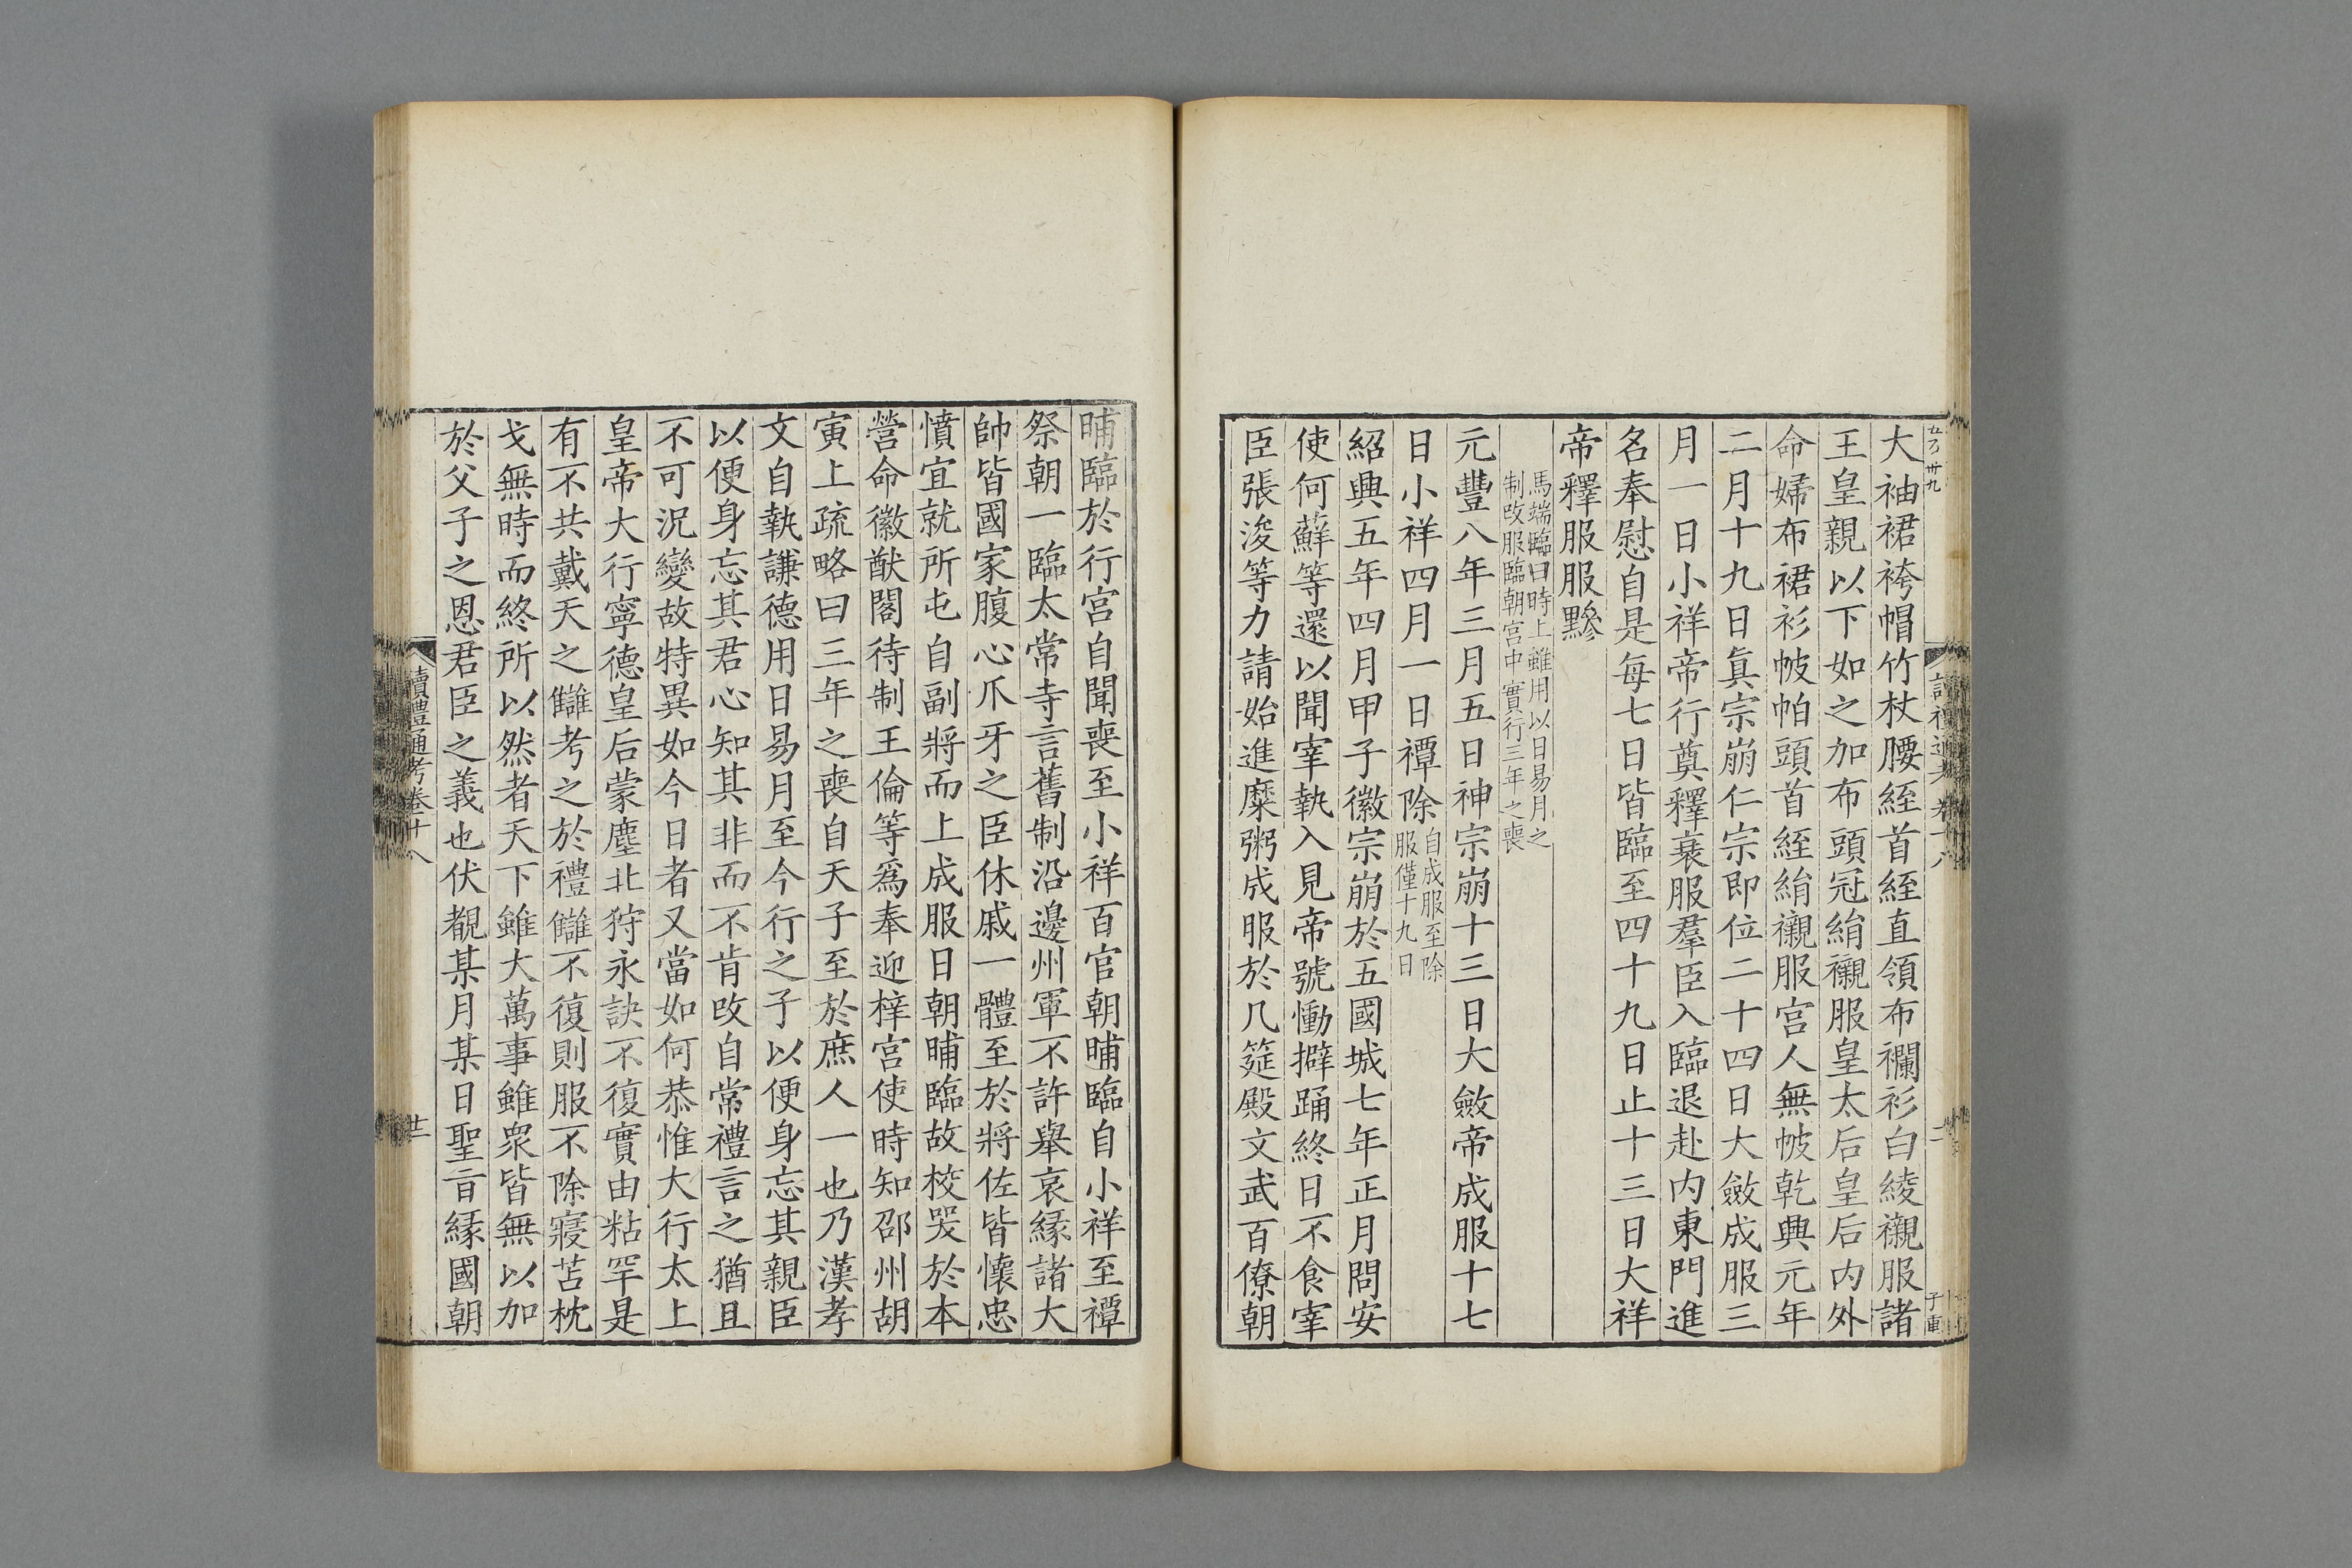 大袖裙袴帽竹杖腰絰首絰直領布襴衫白綾襯服諸
王皇親以下如之加布頭冠絹襯服皇太后皇后内外
命婦布裙衫帔帕頭首絰絹襯服宮人無帔乾興元年
二月十九日眞宗崩仁宗即位二十四日大斂成服三
月一日小祥帝行奠釋衰服羣臣入臨退赴内東門進
名奉慰自是每七日皆臨至四十九日止十三日大祥
帝釋服服黲
馬端臨曰時上雖用以日易月之
制改服臨朝宮中實行三年之喪
元豐八年三月五日神宗崩十三日大斂帝成服十七
日小祥四月一日禫除
自成服至除
服僅十九日
紹興五年四月甲子徽宗崩於五國城七年正月問安
使何蘇等還以聞宰執入見帝號慟擗踊終日不食宰
臣張浚等力請始進糜粥成服於几筵殿文武百僚朝
晡臨於行宮自聞喪至小祥百官朝晡臨自小祥至禫
祭朝一臨太常寺言舊制沿邊州軍不許舉哀緣諸大
帥皆國家腹心爪牙之臣休戚一體至於將佐皆懷忠
憤宜就所屯自副將而上成服日朝晡臨故校哭於本
營命徽猷閣待制王倫等爲奉迎梓宮使時知邵州胡
寅上疏略曰三年之喪自天子至於庶人一也乃漢孝
文自執謙德用日易月至今行之子以便身忘其親臣
以便身忘其君心知其非而不肯改自常禮言之猶且
不可況變故特異如今日者又當如何恭惟大行太上
皇帝大行寧德皇后蒙塵北狩永訣不復實由粘罕是
有不共戴天之讎考之於禮讎不復則服不除寢苫枕
戈無時而終所以然者天下雖大萬事雖衆皆無以加
於父子之恩君臣之義也伏覩某月某日聖旨緣國朝
讀禮通考卷十八
廿二